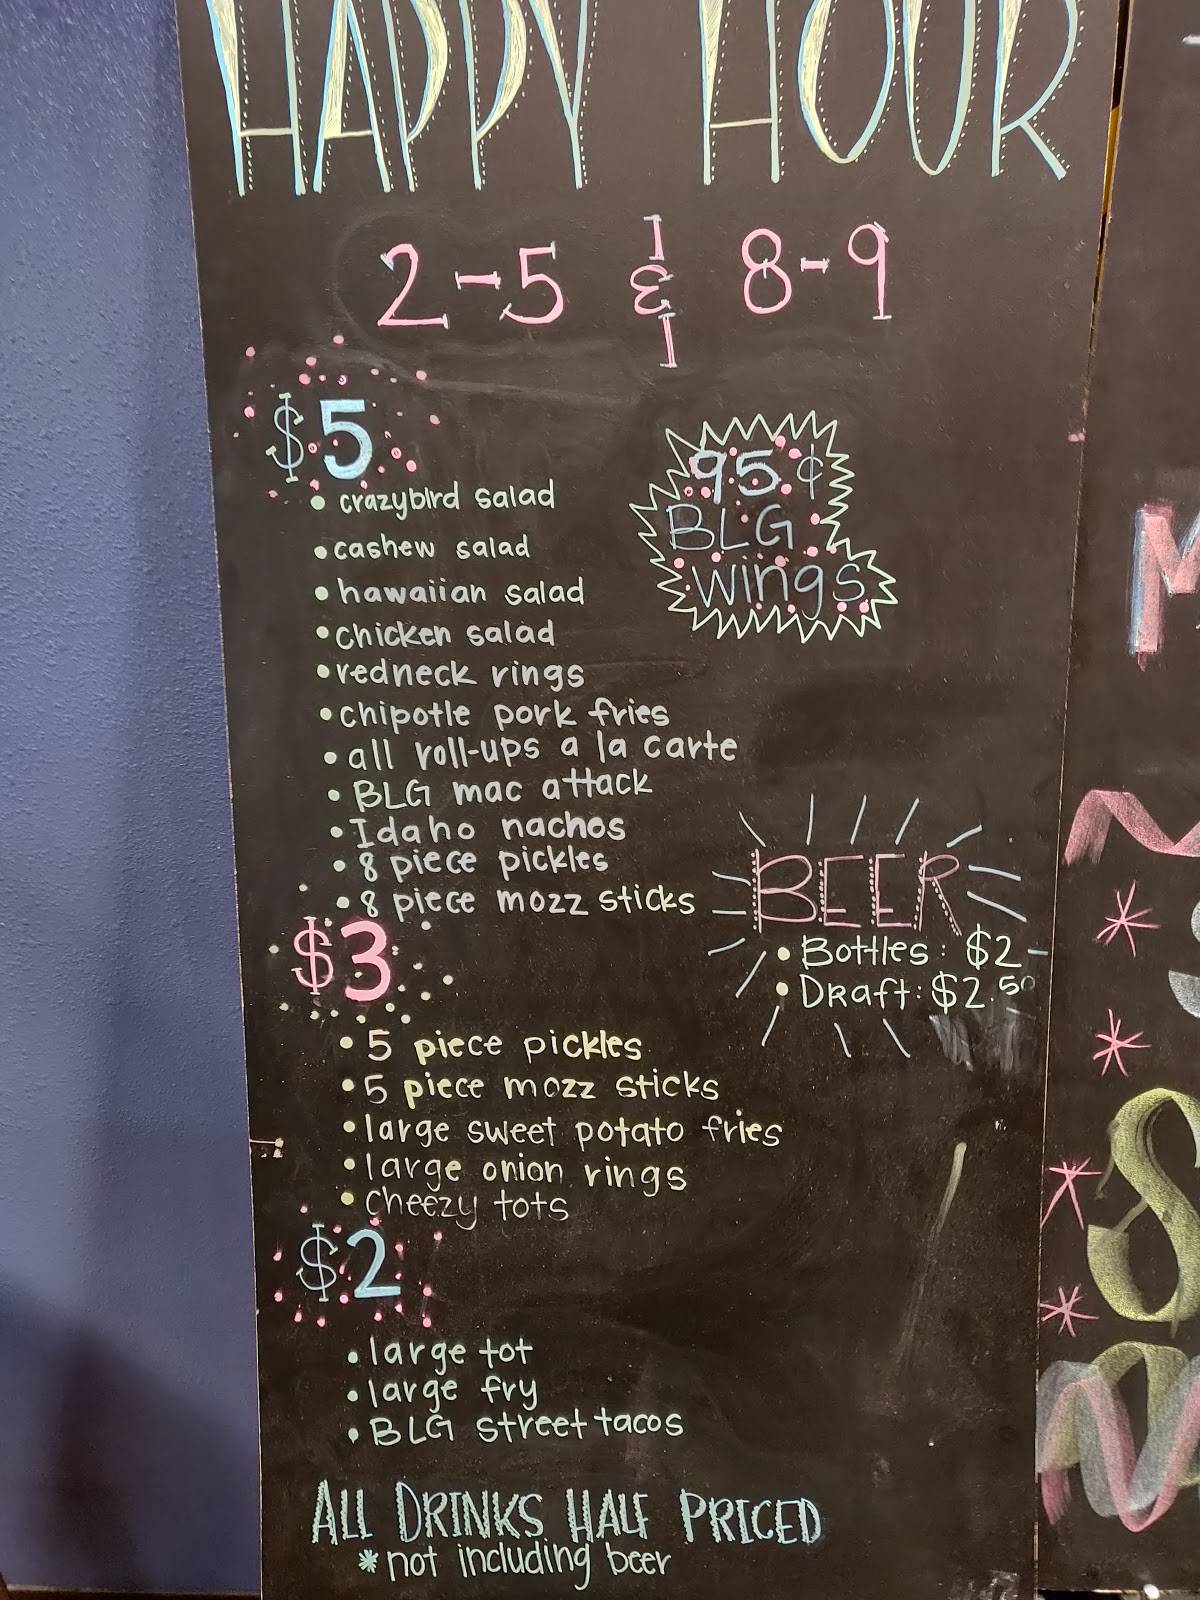 HAPPY HOUR
2-5 & 8-9
$5
• crazybird salad
• cashew salad
• hawaiian salad
• chicken salad
• redneck rings
• chipotle pork fries
• all roll-ups a la carte
• BLG mac attack
• Idaho nachos
• 8 piece pickles
• 8 piece mozz sticks
95¢
BLG
wings
BEER
• Bottles: $2
• Draft: $2.50
$3
• 5 piece pickles
• 5 piece mozz sticks
• large sweet potato fries
• large onion rings
• cheezy tots
$2
• large tot
• large fry
• BLG street tacos
ALL DRINKS HALF PRICED
* not including beer